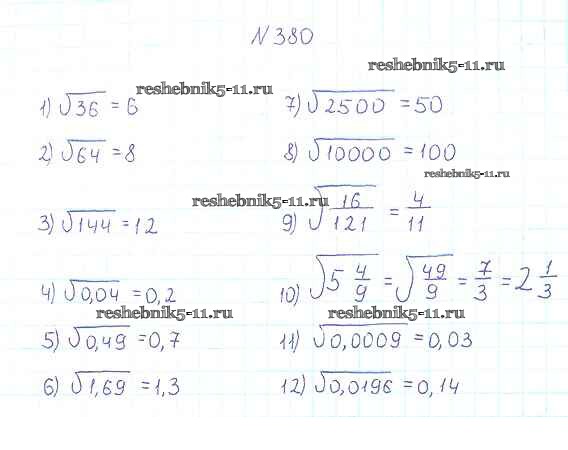 N 380
reshebnik5-11.ru
reshebnik5-11.ru
1) √36 = 6
7) √2500 = 50
2) √64 = 8
8) √10000 = 100
reshebnik5-11.ru
reshebnik5-11.ru
3) √144 = 12
9) √16/121 = 4/11
4) √0,04 = 0,2
10) √5 4/9 = √49/9 = 7/3 = 2 1/3
reshebnik5-11.ru
reshebnik5-11.ru
5) √0,49 = 0,7
11) √0,0009 = 0,03
6) √1,69 = 1,3
12) √0,0196 = 0,14